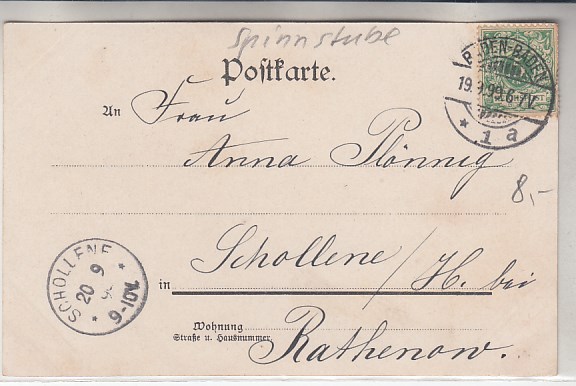 Spinnstube
Postkarte.
BADEN-BADEN
19.9.99.6-7V.
* 1 a
An Frau
Anna Plönnig
8,-
Schollene/H. bei
in
SCHOLLENE
20 9
9-10V.
Wohnung
Straße u. Hausnummer
Rathenow.